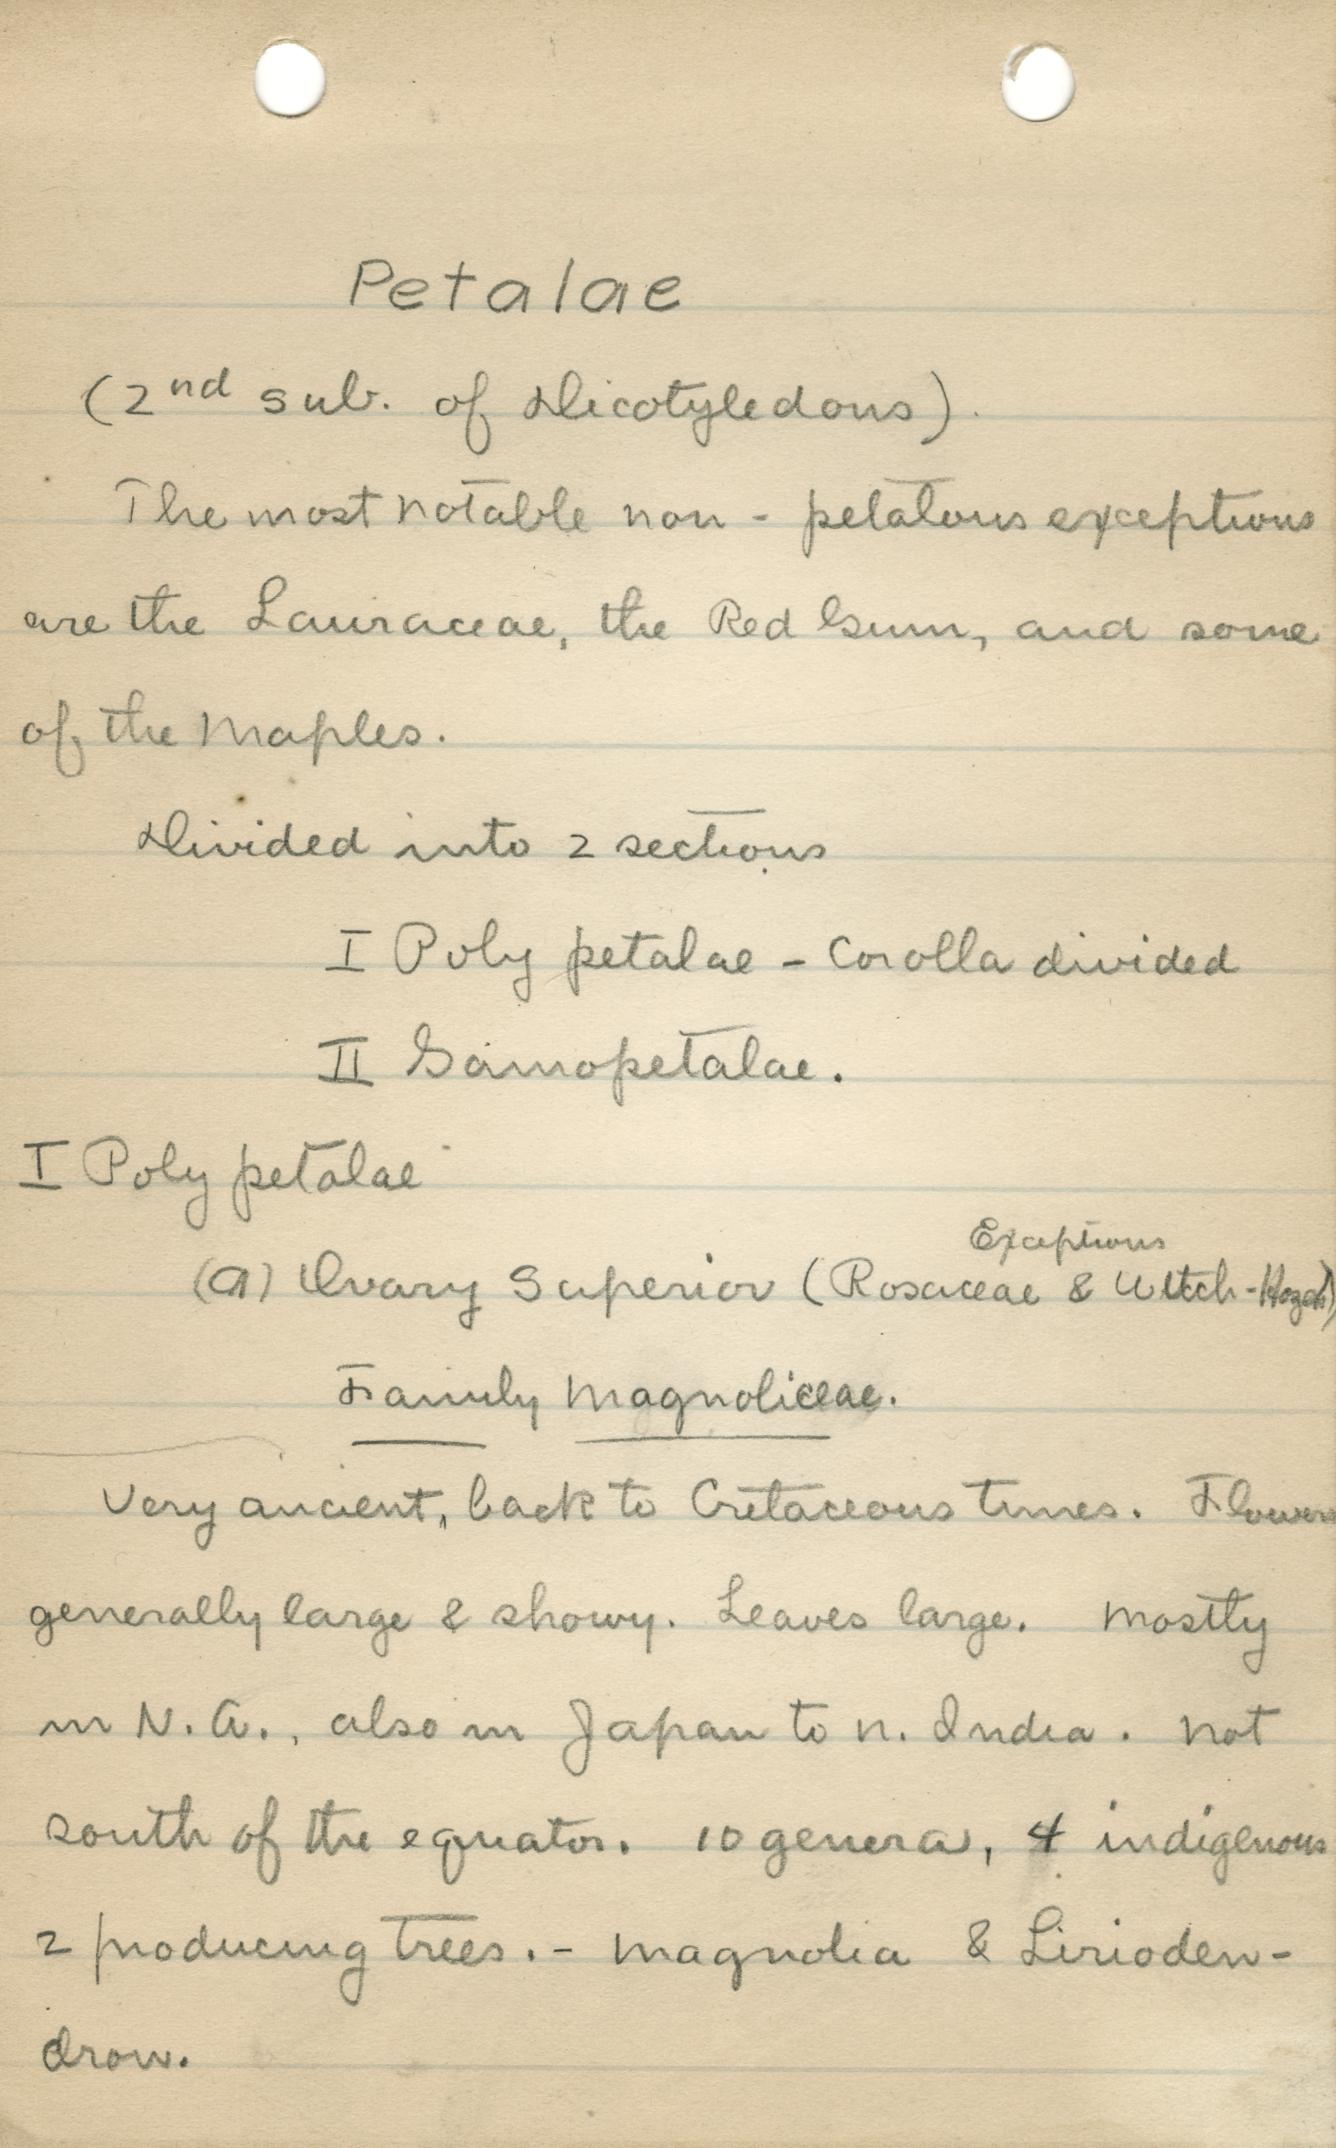 Petalae
(2nd sub. of Dicotyledons).
The most notable non - petalous exceptions
are the Lauraceae, the Red Gum, and some
of the Maples.
Divided into 2 sections
I Poly petalae - Corolla divided
II Gamopetalae.
I Poly petalae
Exceptions
(a) Ovary Superior (Rosaceae & Witch-Hazel)
Family Magnoliceae.
Very ancient, back to Cretaceous times. Flowers
generally large & showy. Leaves large. Mostly
in N. A., also in Japan to n. India. Not
south of the equator. 10 genera, 4 indigenous
2 producing trees. - Magnolia & Lirioden-
dron.